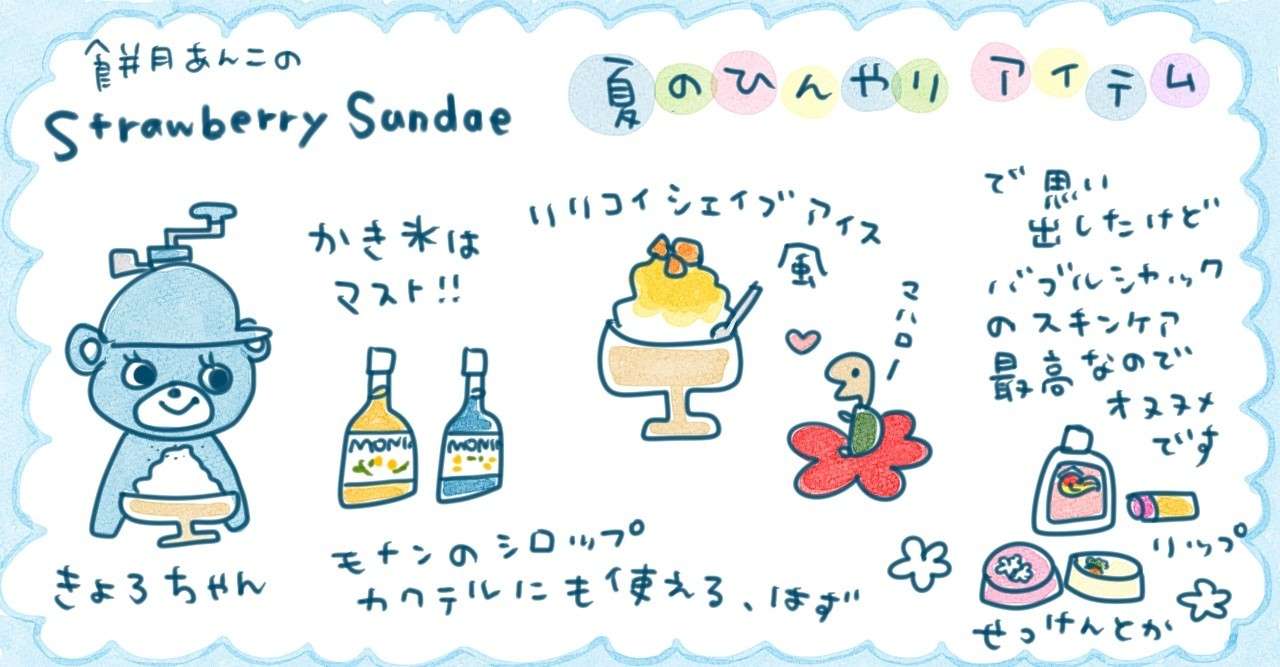 餅月あんこの
Strawberry Sundae
夏のひんやり アイテム
かき氷は
マスト!!
リリコイシェイブアイス
風
マハロー
で思い
出したけど
バブルシャック
のスキンケア
最高なので
オススメ
です
MONIN
MONIN
きょろちゃん
モナンのシロップ
カクテルにも使える、はず
リップ
せっけんとか